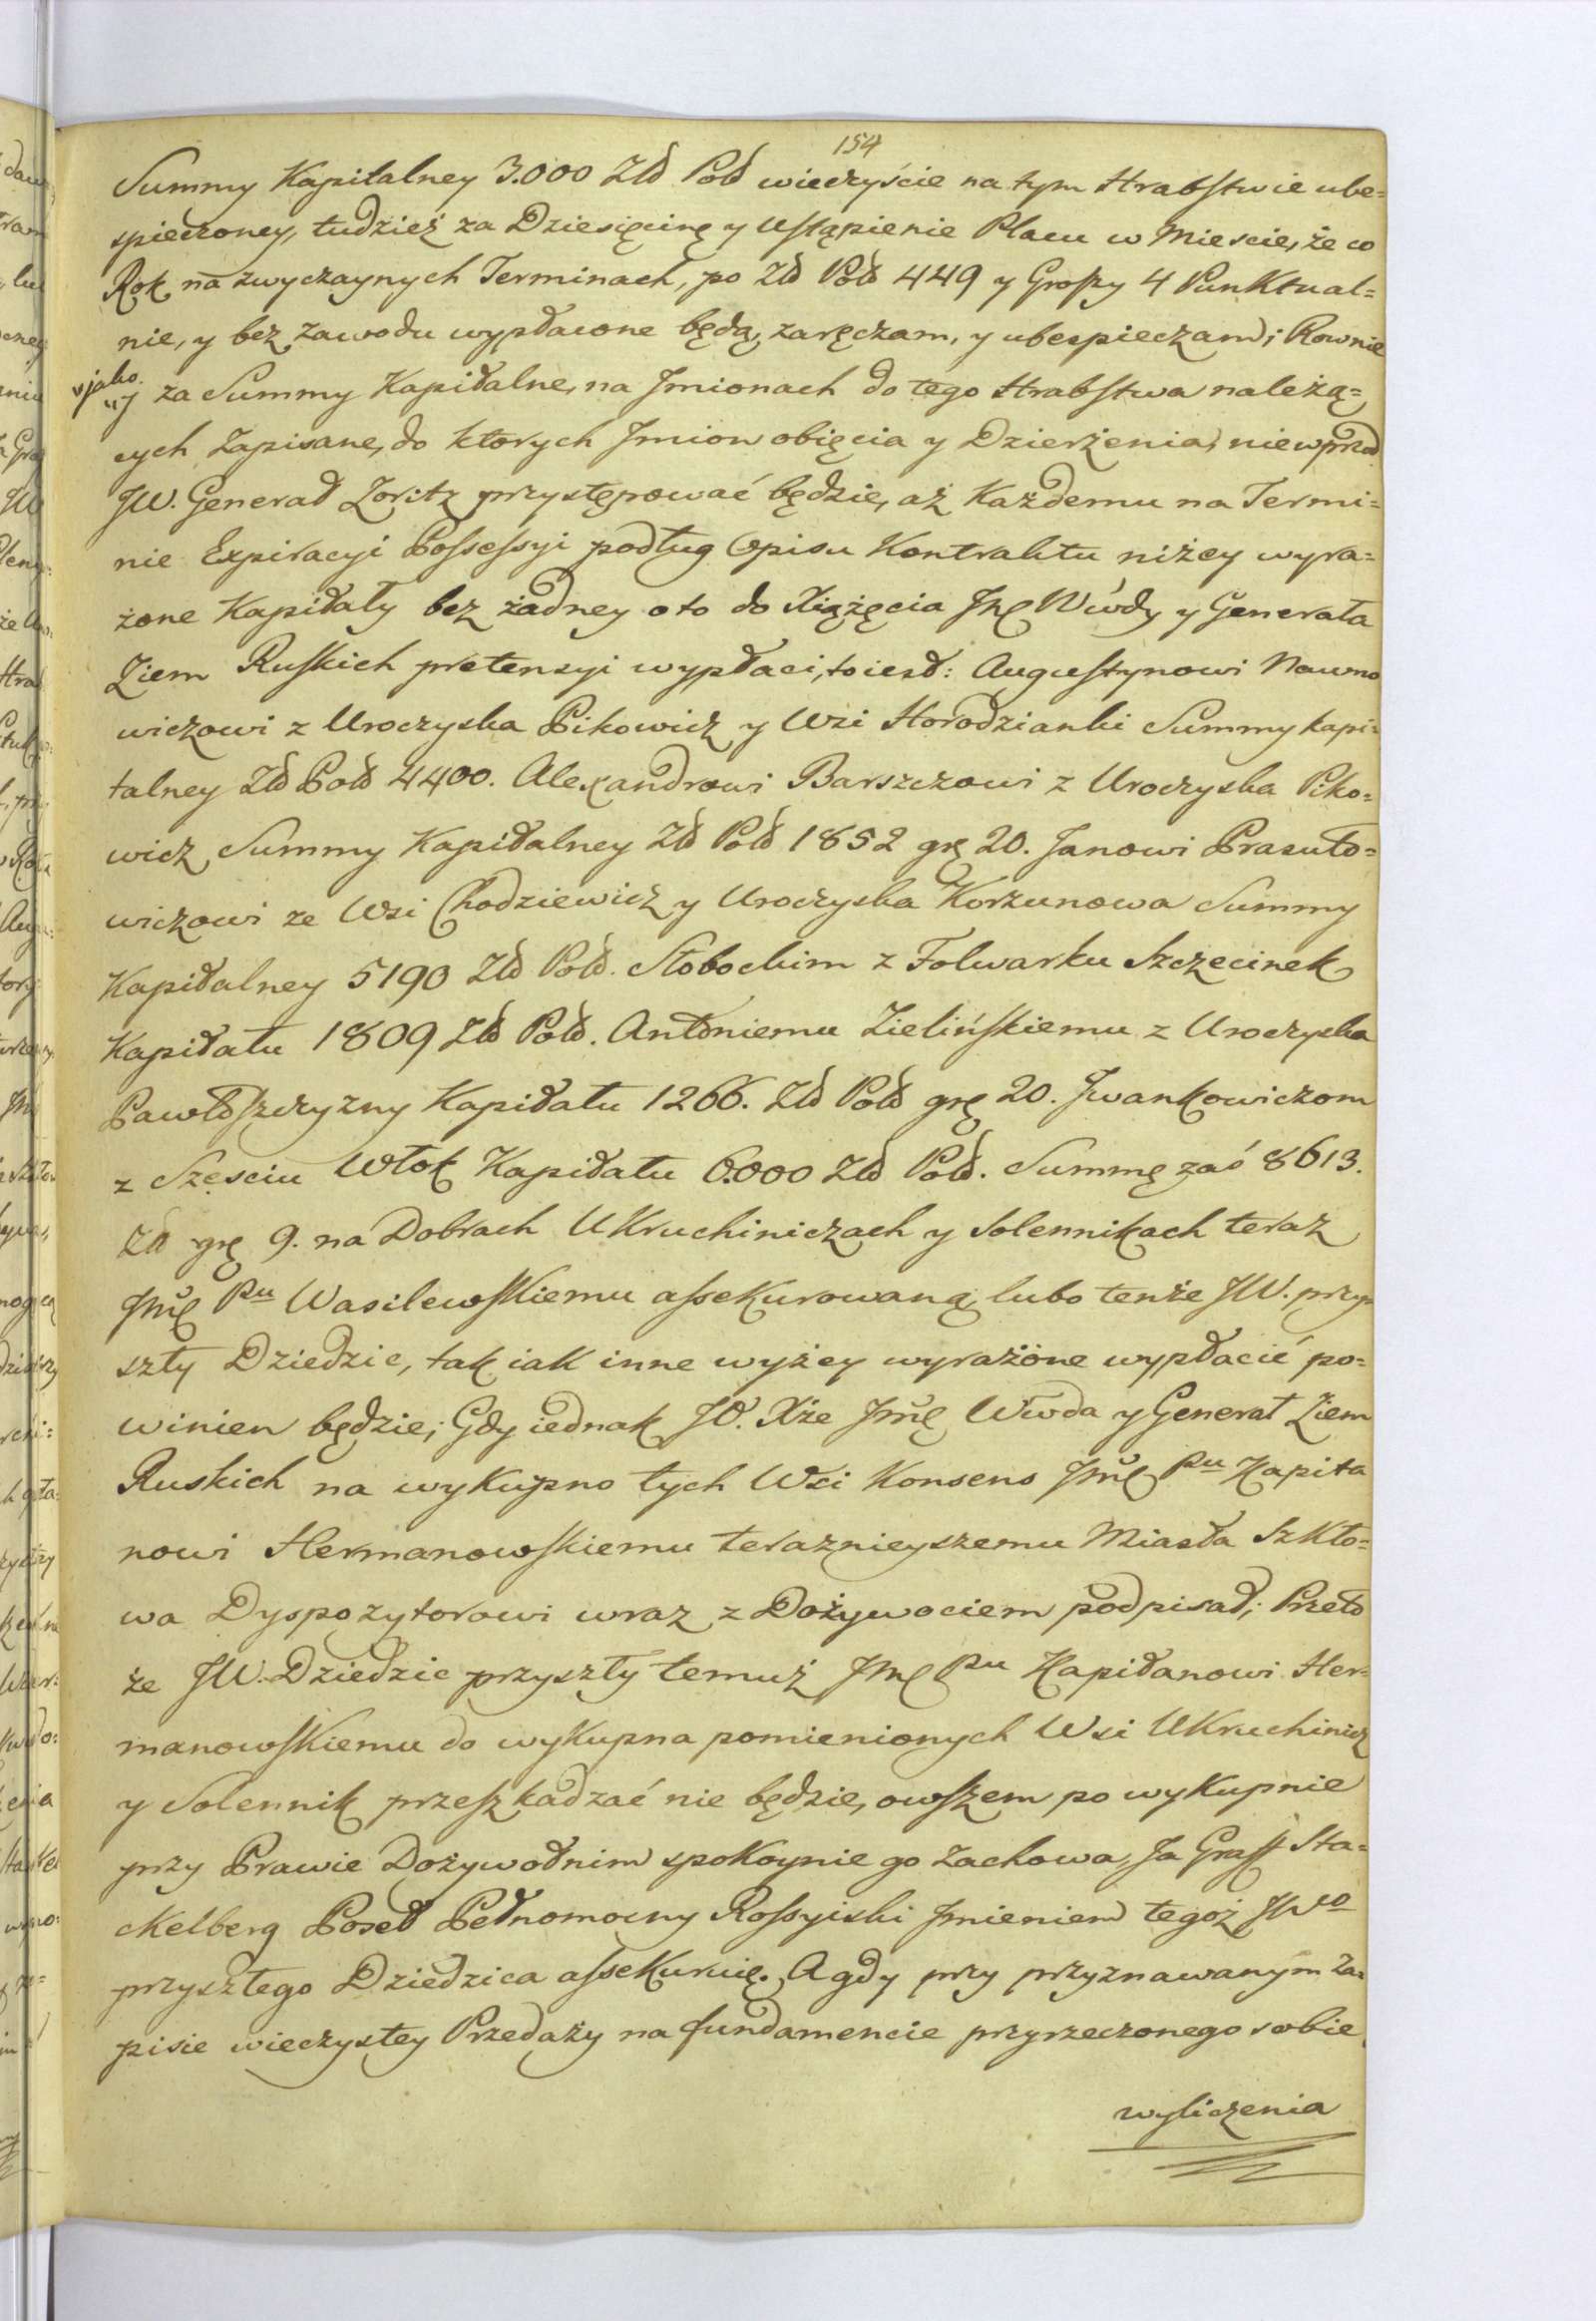 154
Summy Kapitalney 3.000 Złł Poll wieczyście na tym Hrabstwie ube=
spieczoney, tudzież za Dziesięcinę y Ustąpienie Placu w Miescie, że co
Rok na zwyczaynych Terminach, po Złł Poll 449 y Groszy 4 Punktual=
nie, y bez zawodu wypłacone będą, zaręczam, y ubespieczam; Rownie
jako
y za Summy Kapitalne, na Jmionach do tego Hrabstwa należą=
cych Zapisane, do ktorych Jmion obięcia y Dzierżenia, niewprzod
JW. Generał Zoritz przystępować będzie, aż Każdemu na Termi=
nie Expiracyi Possessyi podług Opisu Kontraktu niżey wyra=
żone Kapitały bez żadney oto do Xiążęcia Jmę Wwdy y Generała
Ziem Ruskich pretensyi wypłaci, to iest: Augustynowi Nawno
wiczowi z Uroczyska Pikowicz y Wsi Horodzianki Summy kapi=
talney Złł Poll 4400. Alexandrowi Barszczowi z Uroczyska Piko=
wicz Summy Kapitalney Złł Poll 1852 grę 20. Janowi Prasuło=
wiczowi ze Wsi Chodziewicz y Uroczyska Korzunowa Summy
Kapitalney 5190 Złł Poll. Słobockim z Folwarku Szczecinek
Kapitału 1809 Złł Poll. Antoniemu Zielińskiemu z Uroczyska
Pawłoszczyzny Kapitału 1266. Złł Poll grę 20. Jwankowiczom
z Szesciu Włok Kapitału 6.000 Złł Poll. Summę zaś 8613.
Złł grę 9. na Dobrach Ukruchiniczach y Solennikach teraz
Jmę Pu Wasilewskiemu assekurowaną, lubo tenże JW. przy
szły Dziedzic, tak iak inne wyżey wyrażone wypłacić po=
winien będzie; Gdy iednak JO. Xże Jmę Wwda y Generał Ziem
Ruskich na wykupno tych Wsi Konsens Jmę Pu Kapita
nowi Hermanowskiemu teraznieyszemu Miasta Szkło=
wa Dyspozytorowi wraz z Dożywociem podpisał; Przeto
że JW. Dziedzic przyszły temuż Jmę Pu Kapitanowi Her=
manowskiemu do wykupna pomienionych Wsi Ukruchinicz
y Solennik przeszkadzać nie będzie, owszem po wykupnie
przy Prawie Dożywotnim spokoynie go zachowa, Ja Graff Sta=
ckelberg Poseł Pełnomocny Rossyiski Jmieniem tegoż JWo
przyszłego Dziedzica assekuruię. A gdy przy przyznawanym za=
pisie wieczystey Przedaży na fundamencie przyrzeczonego sobie
wyliczenia